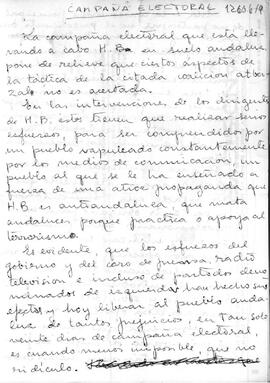 CAMPAÑA ELECTORAL
La campaña electoral que está lle-
vando a cabo H.B. en suelo andaluz
pone de relieve que ciertos aspectos de
la táctica de la citada coalición aber-
zale no es acertada.
En las intervenciones de los dirigentes
de H.B. estos tienen que realizar serios
esfuerzos, para ser comprendidos por
un pueblo vapuleado constantemente
por los medios de comunicación, un
pueblo al que se le ha enseñado a
fuerza de una atroz propaganda que
H.B. es antiandaluza, que mata
andaluces, porque practica o apoya al
terrorismo.
Es evidente que los esfuerzos del
gobierno y del coro de prensa, radio
television e incluso de partidos deno-
minados de izquierdas han hecho su
efecto, y hoy liberar al pueblo anda-
luz de tantos prejuicios, en tan solo
veinte dias de campaña electoral,
es cuando menos imposible, que no
ridículo.